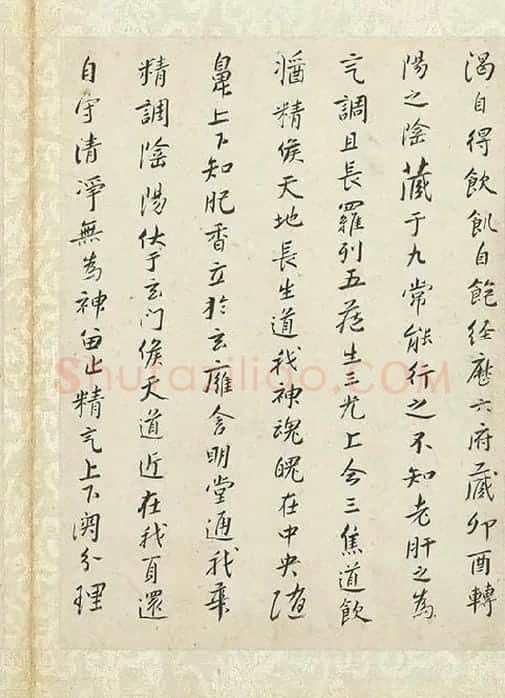 渴自得飲飢自飽经歷六府藏卯酉轉
陽之陰藏于九常能行之不知老肝之為
气調且長羅列五藏生三光上合三焦道飲
醬精候天地長生道我神魂魄在中央隨
鼻上下知肥香立於玄雍含明堂通我華
精調陰陽伏于玄门候天道近在我身還
自守清淨無為神留止精气上下関分理
Shufaziliao.COM